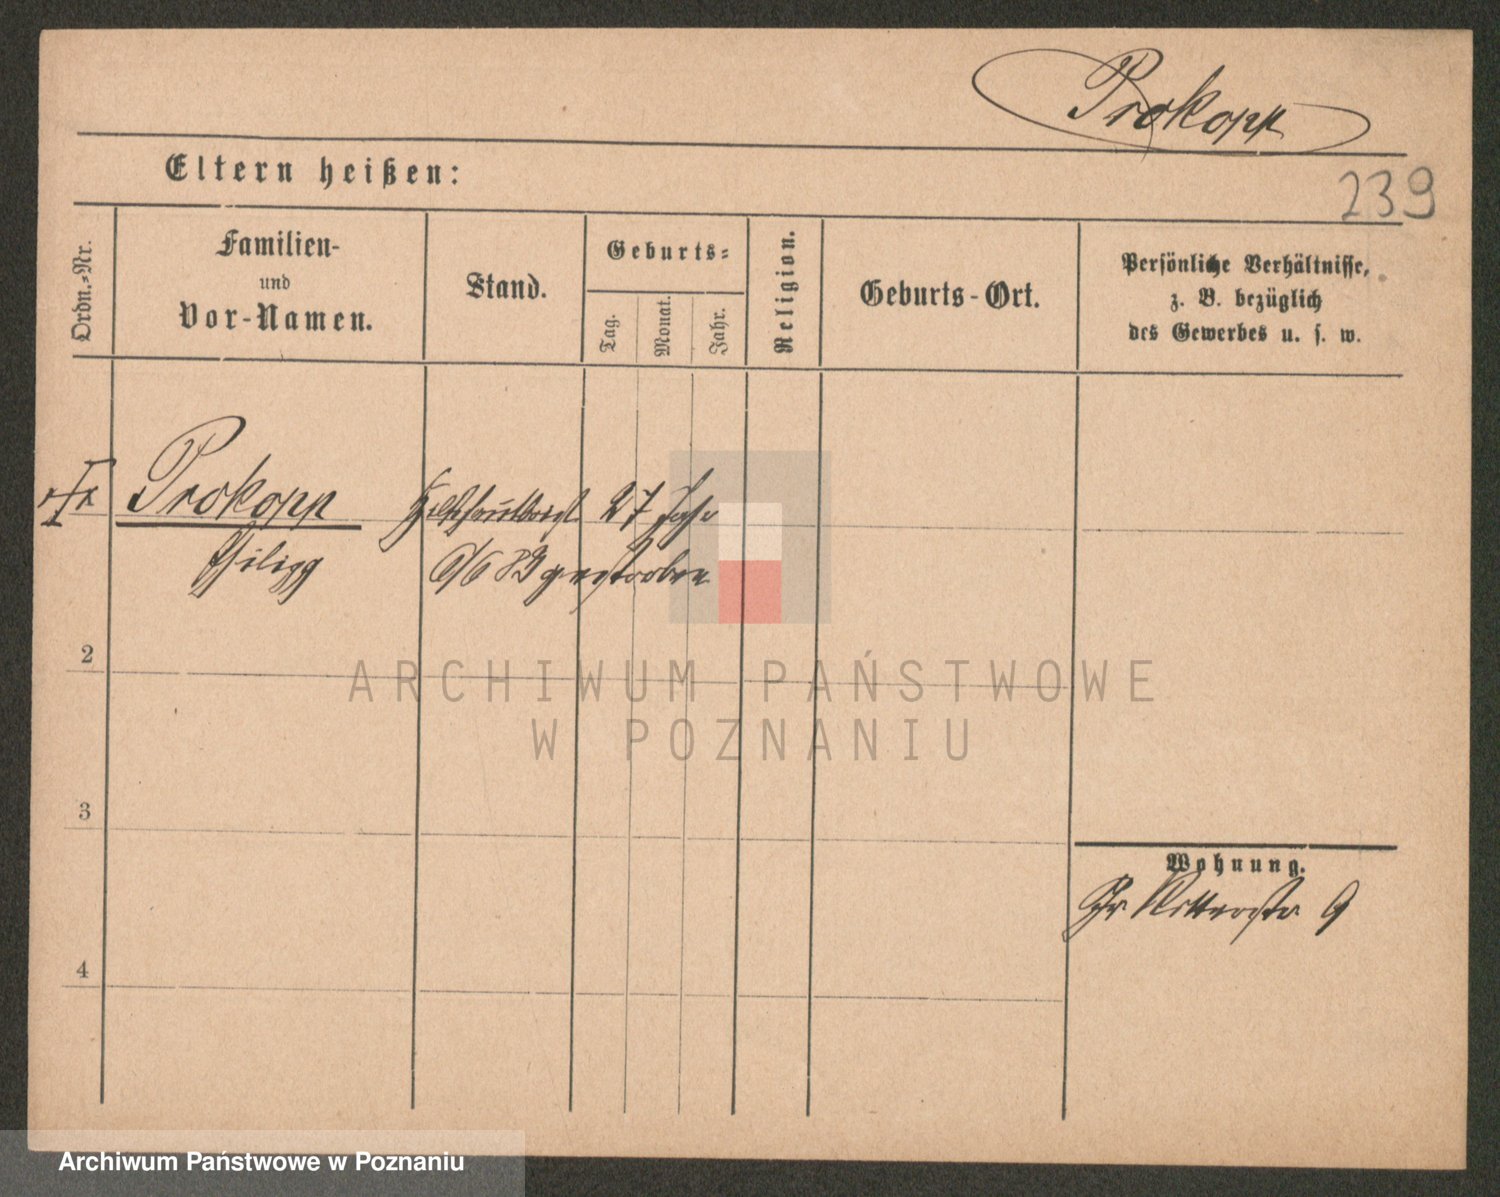 Prokopp
239
Eltern heißen:
Ordn.-Nr.
Familien-
und
Vor-Namen.
Stand.
Geburts-
Tag.
Monat.
Jahr.
Religion.
Geburts-Ort.
Persönliche Verhältnisse,
z. B. bezüglich
des Gewerbes u. s. w.
Prokopp
27 Jahr
Philipp
gestorben
2
ARCHIWUM PAŃSTWOWE
W POZNANIU
3
Wohnung.
Ritterstr 9
4
Archiwum Państwowe w Poznaniu